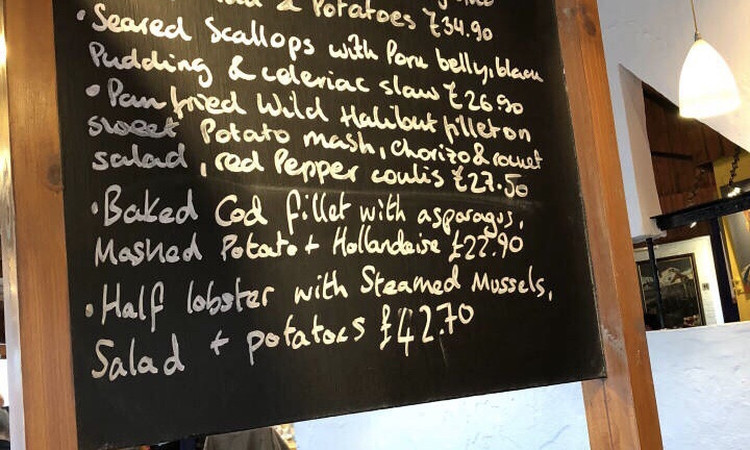 & Potatoes £34.90
• Seared Scallops with Pork belly, black
Pudding & celeriac slaw £26.90
• Pan fried Wild Halibut fillet on
sweet Potato mash, Chorizo & rocket
salad, red Pepper coulis £27.50
• Baked Cod fillet with asparagus,
Mashed Potato + Hollandaise £22.90
• Half lobster with Steamed Mussels,
Salad + potatoes £42.70